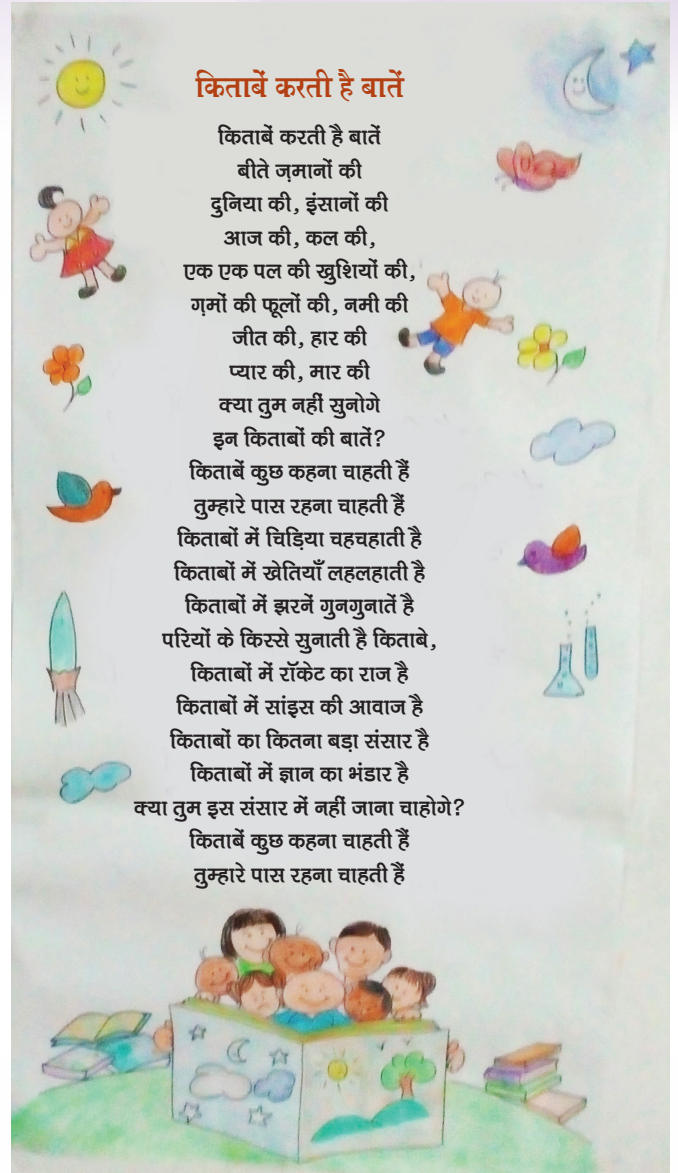 किताबें करती है बातें
किताबें करती है बातें
बीते ज़मानों की
दुनिया की, इंसानों की
आज की, कल की,
एक एक पल की खुशियों की,
ग़मों की फूलों की, नमी की
जीत की, हार की
प्यार की, मार की
क्या तुम नहीं सुनोगे
इन किताबों की बातें?
किताबें कुछ कहना चाहती हैं
तुम्हारे पास रहना चाहती हैं
किताबों में चिड़िया चहचहाती है
किताबों में खेतियाँ लहलहाती है
किताबों में झरनें गुनगुनातें है
परियों के किस्से सुनाती है किताबे,
किताबों में रॉकेट का राज है
किताबों में सांइस की आवाज है
किताबों का कितना बड़ा संसार है
किताबों में ज्ञान का भंडार है
क्या तुम इस संसार में नहीं जाना चाहोगे?
किताबें कुछ कहना चाहती हैं
तुम्हारे पास रहना चाहती हैं